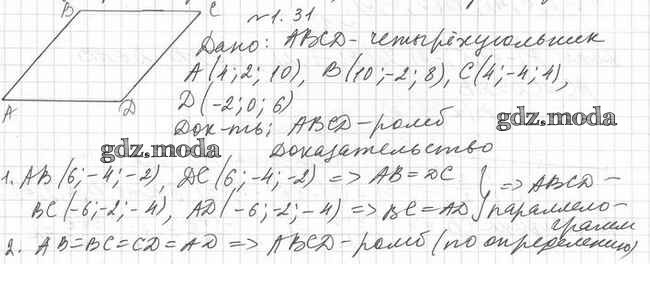 B C
№1.31
Дано: ABCD - четырёхугольник
A(4; 2; 10), B(10; -2; 8), C(4; -4; 4),
D(-2; 0; 6)
A D
Док-ть: ABCD - ромб
gdz.moda
gdz.moda
Доказательство
1. AB(6; -4; -2), DC(6; -4; -2) => AB = DC } => ABCD -
BC(-6; -2; -4), AD(-6; -2; -4) => BC = AD } параллело-
грамм
2. AB = BC = CD = AD => ABCD - ромб (по определению)